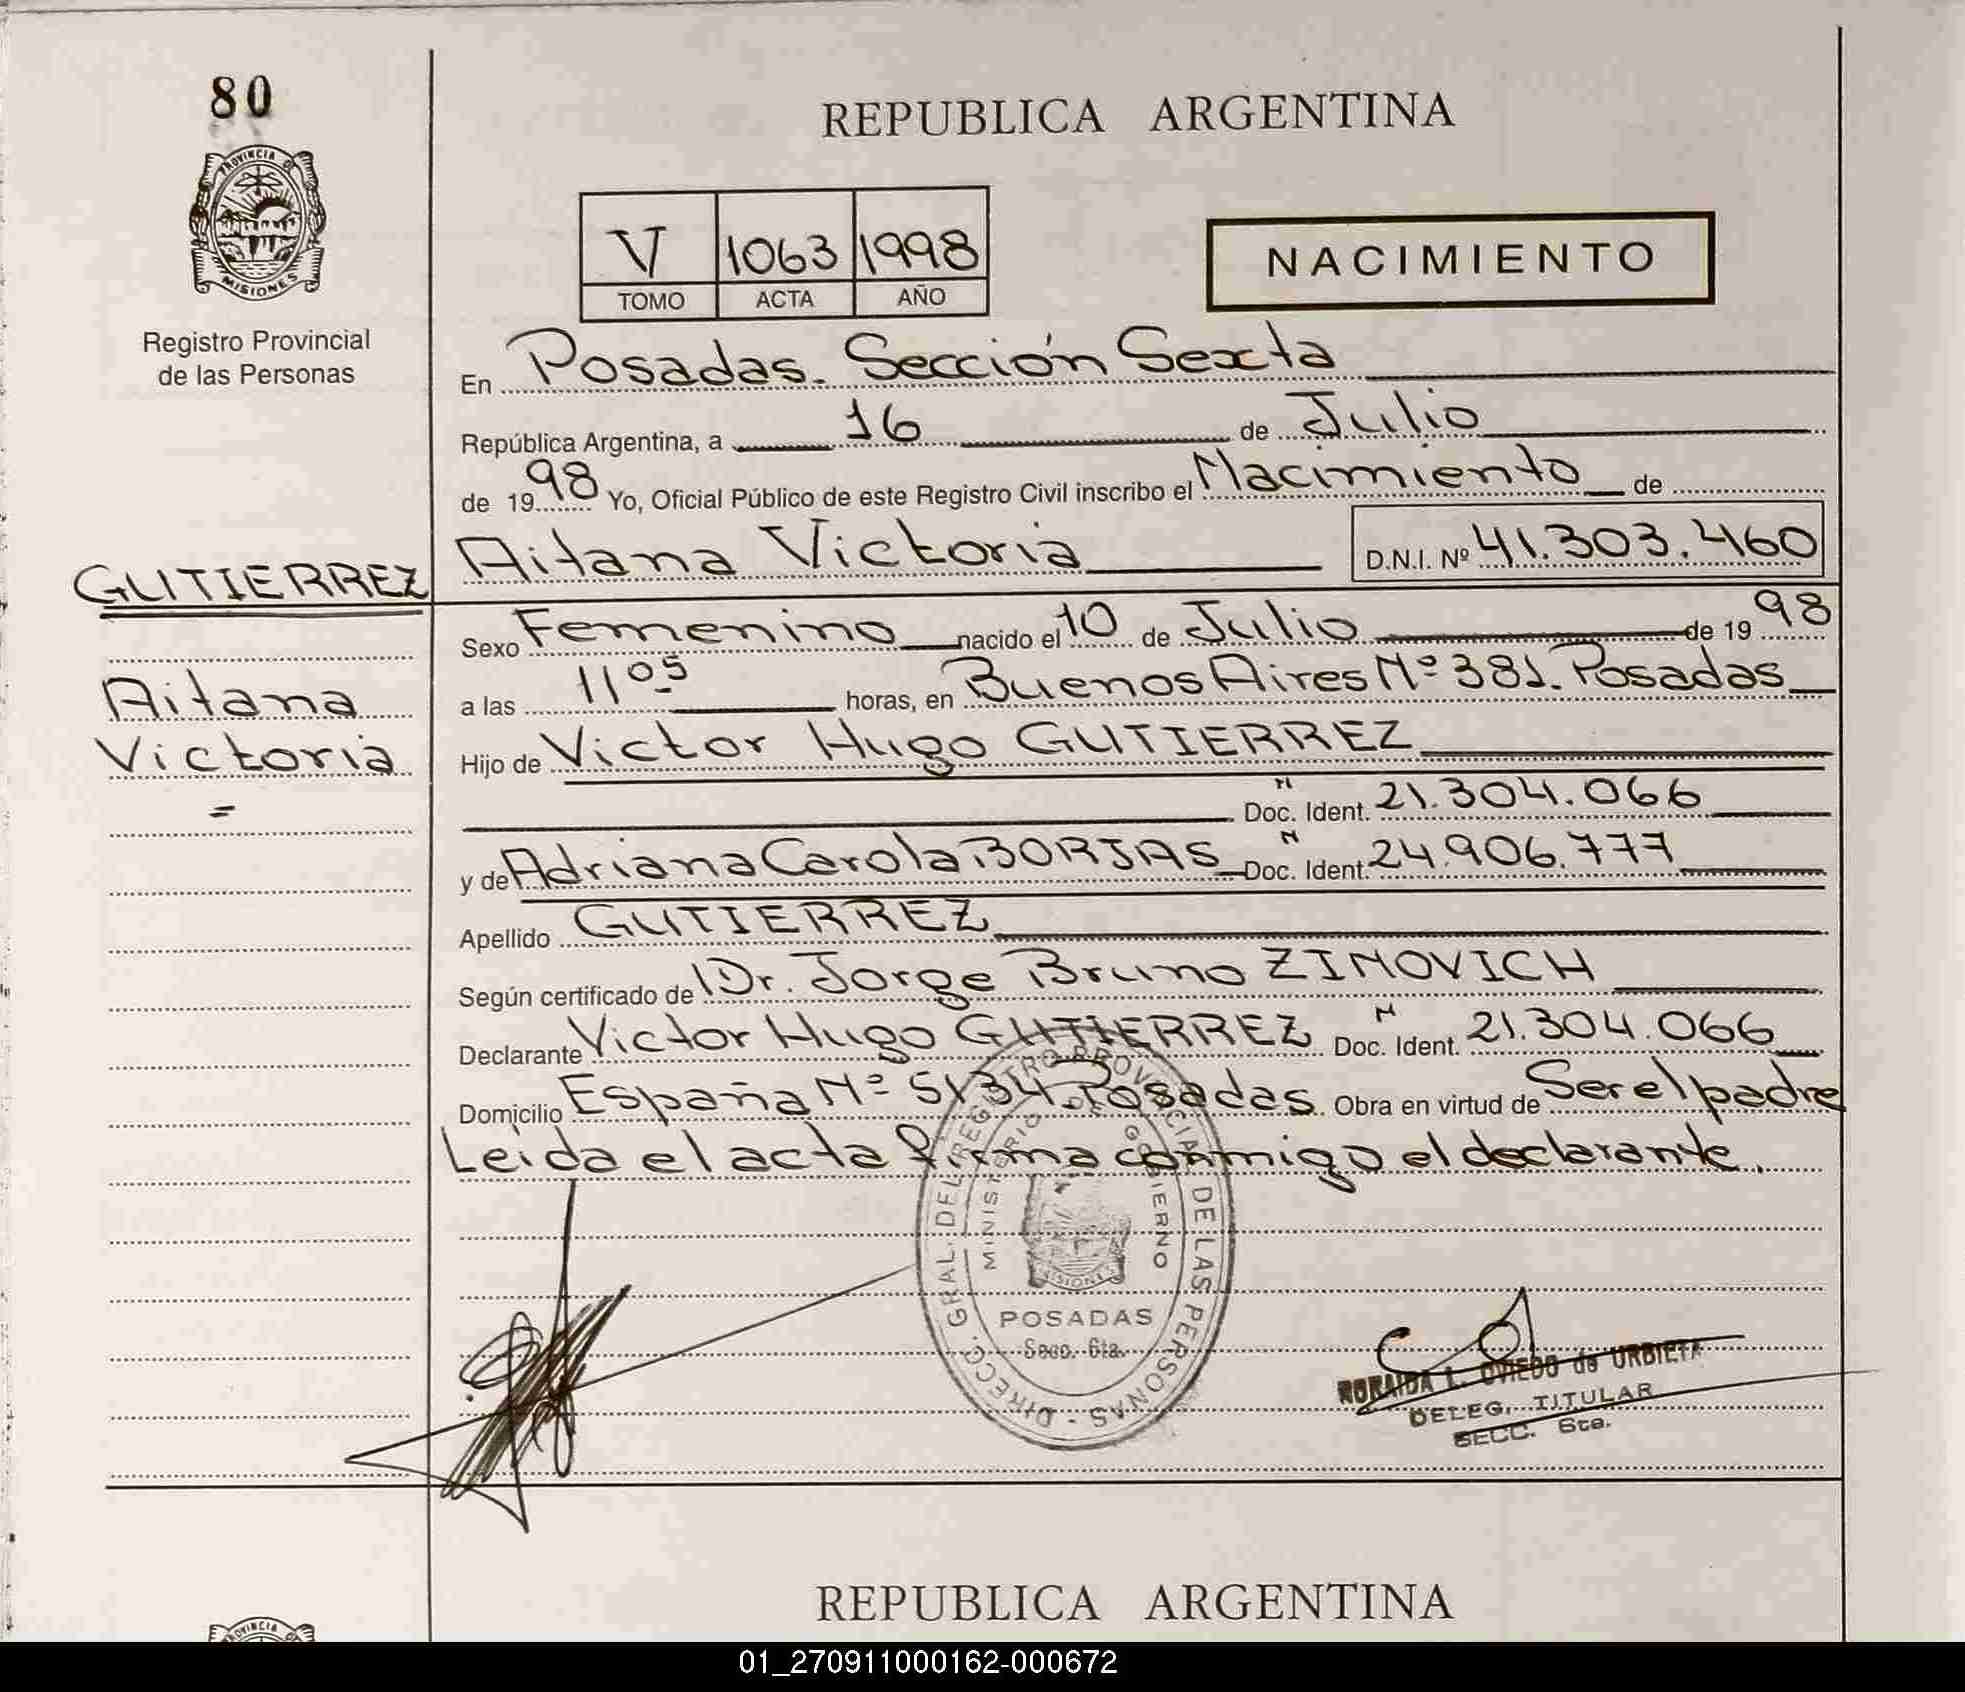 80
PROVINCIA DE
MISIONES
Registro Provincial
de las Personas
GUTIERREZ
Aitana
Victoria
=
REPUBLICA ARGENTINA
V 1063 1998
TOMO ACTA AÑO
NACIMIENTO
En Posadas. Sección Sexta
República Argentina, a 16 de Julio
de 1998 Yo, Oficial Público de este Registro Civil inscribo el Nacimiento de
Aitana Victoria D.N.I. Nº 41.303.460
Sexo Femenino nacido el 10 de Julio de 1998
a las 11 05 horas, en Buenos Aires Nº 381. Posadas
Hijo de Victor Hugo GUTIERREZ
N
Doc. Ident. 21.304.066
N
y de Adriana Carola BORJAS Doc. Ident. 24.906.777
Apellido GUTIERREZ
Según certificado de Dr. Jorge Bruno ZINOVICH
N
Declarante Victor Hugo GUTIERREZ Doc. Ident. 21.304.066
Domicilio España Nº 5134. Posadas. Obra en virtud de Ser el padre
Leida el acta firma conmigo el declarante.
DIRECC. GRAL. DEL REGISTRO PROVINCIAL DE LAS PERSONAS -
MINISTERIO DE GOBIERNO
MISIONES
POSADAS
Secc. 6ta.
L. OVIEDO de URBIETA
DELEG. TITULAR
SECC. 6ta.
REPUBLICA ARGENTINA
PROVINCIA DE
01_270911000162-000672